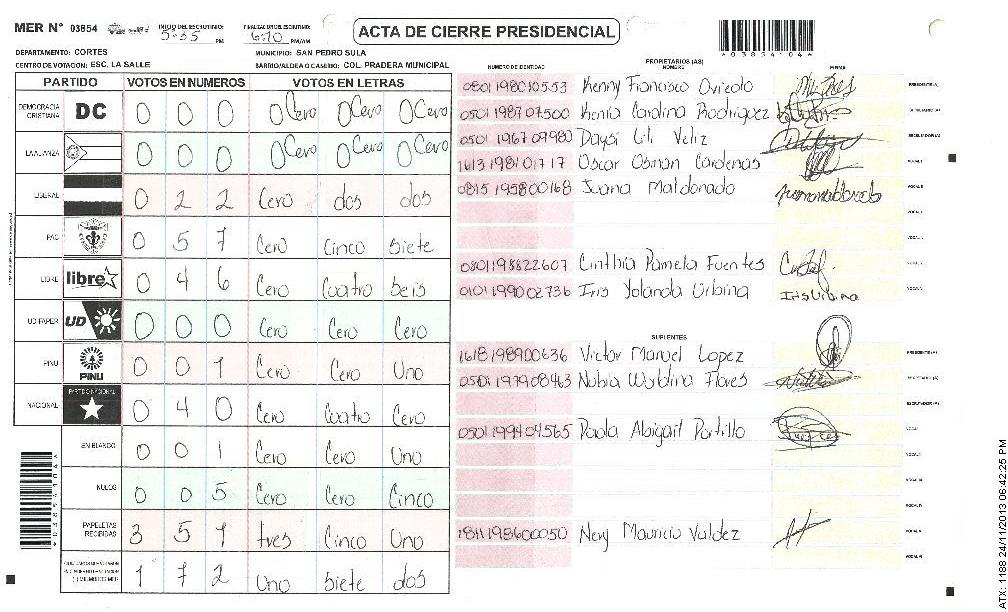 MER N° 03854
INICIO DEL ESCRUTINIO: 5:35 PM
FINALIZACION ESCRUTINIO: 6:10 PM/AM
ACTA DE CIERRE PRESIDENCIAL
*0385410*
DEPARTAMENTO: CORTES
MUNICIPIO: SAN PEDRO SULA
CENTRO DE VOTACION: ESC. LA SALLE
BARRIO/ALDEA O CASERIO: COL. PRADERA MUNICIPAL
PARTIDO VOTOS EN NUMEROS VOTOS EN LETRAS
DEMOCRACIA CRISTIANA DC 0 0 0 0 Cero 0 Cero 0 Cero
LA ALIANZA 0 0 0 0 Cero 0 Cero 0 Cero
LIBERAL 0 2 2 Cero dos dos
PAC 0 5 7 Cero Cinco Siete
LIBRE libre 0 4 6 Cero Cuatro Seis
UD-FAPER UD 0 0 0 Cero Cero Cero
PINU PINU 0 0 1 Cero Cero Uno
NACIONAL PARTIDO NACIONAL 0 4 0 Cero Cuatro Cero
EN BLANCO 0 0 1 Cero Cero Uno
NULOS 0 0 5 Cero Cero Cinco
PAPELETAS RECIBIDAS 3 5 1 tres Cinco Uno
1 7 2 Uno Siete dos
PROPIETARIOS (AS)
NUMERO DE IDENTIDAD NOMBRE FIRMA
0801198010553 Kenny Francisco Oviedo PRESIDENTE (A)
0501198707500 Kenia Carolina Rodriguez SECRETARIO (A)
0501196709980 Daysi Lili Veliz ESCRUTADOR (A)
1613198101717 Oscar Osman Cardenas VOCAL I
0815195800168 Juana Maldonado Juanamaldonado VOCAL II
0801198822607 Cinthia Pamela Fuentes
0101199002736 Iris Yolanda Urbina Iris Urbina
SUPLENTES
1618198900636 Victor Manuel Lopez PRESIDENTE (A)
0501197908463 Nubia Waldina Flores SECRETARIO (A)
ESCRUTADOR (A)
0501199404565 Paola Abigail Portillo VOCAL I
1811198600050 Nery Mauricio Valdez
ATX: 1188 24/11/2013 06:42:25 PM